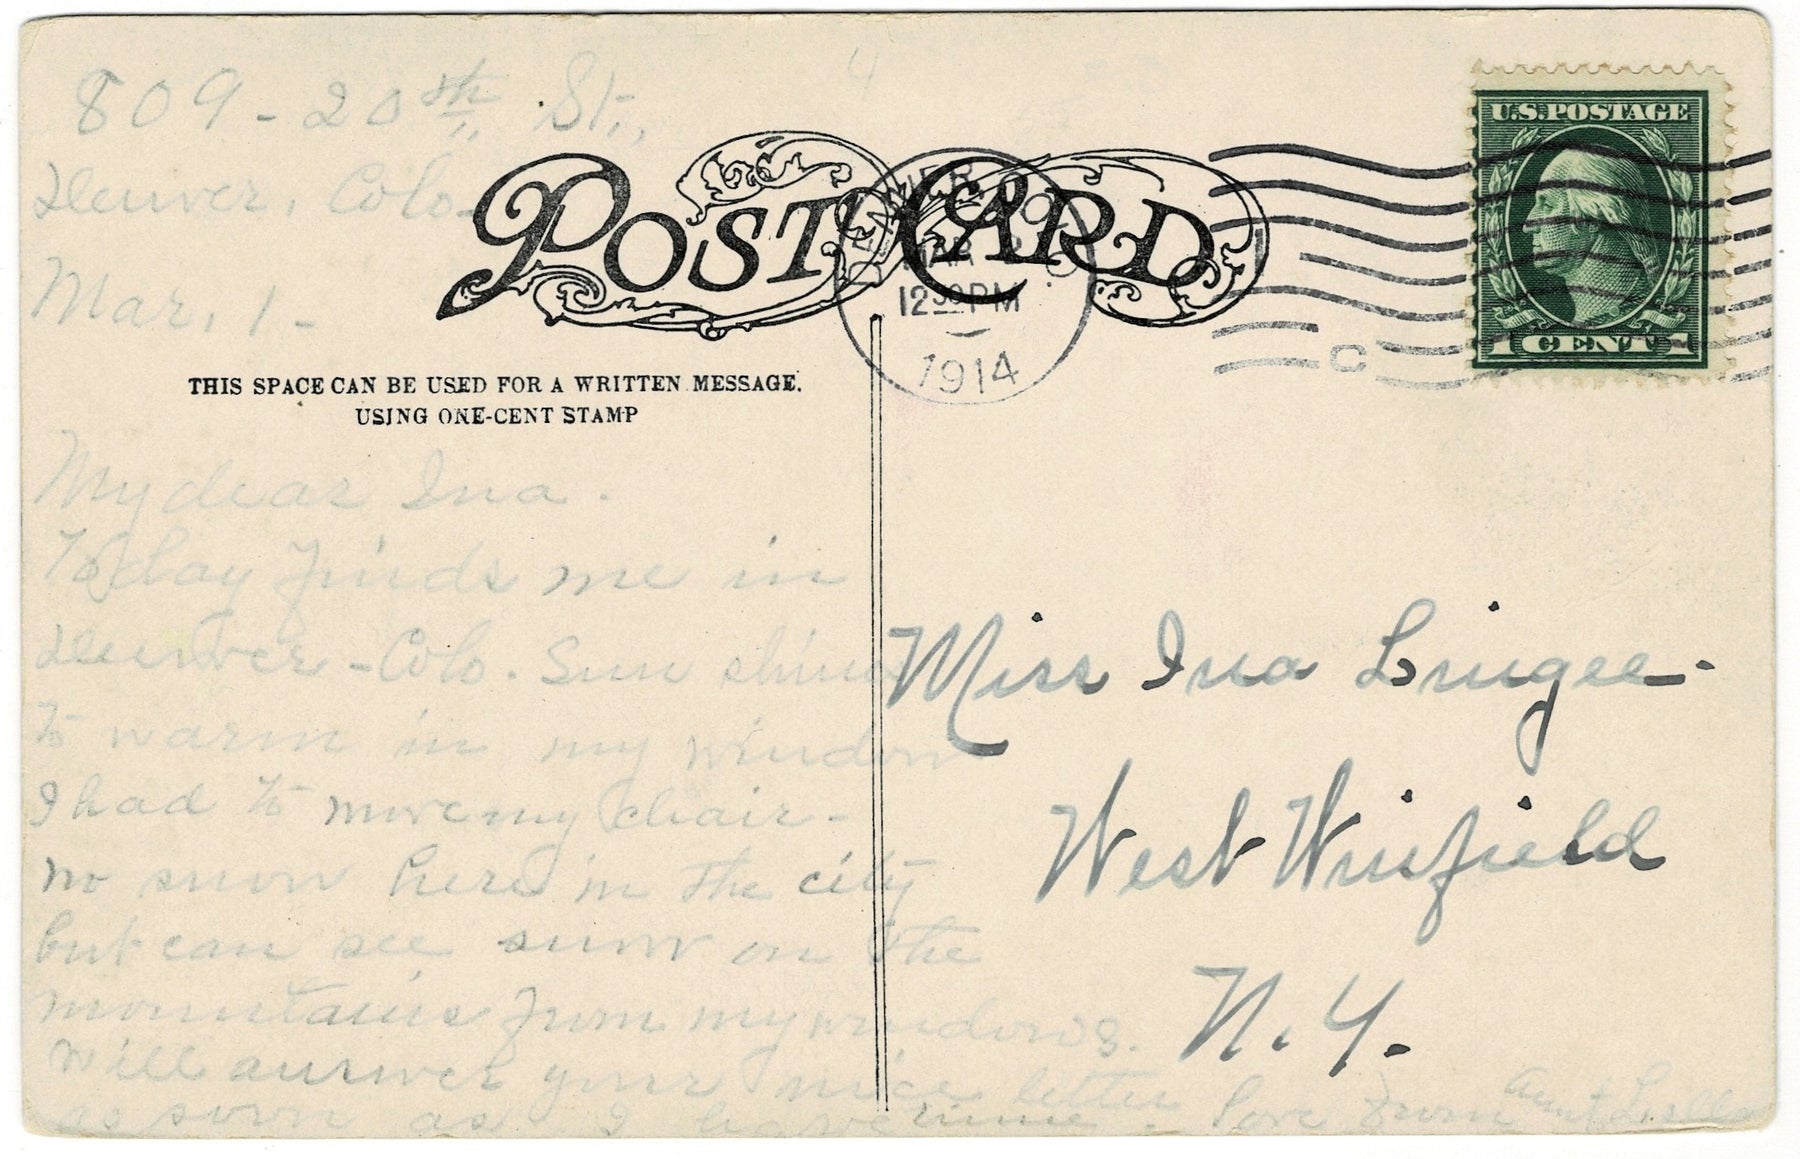 809-20th St.,
Denver, Colo-
Mar. 1-
POST CARD
DENVER COLO
MAR 2
12 30 PM
1914
C
U.S. POSTAGE
1 CENT 1
THIS SPACE CAN BE USED FOR A WRITTEN MESSAGE.
USING ONE-CENT STAMP
My dear Ina.
To day finds me in
Denver-Colo. Sun shines
to warm in my window
I had to move my chair-
no snow here in the city
but can see snow on the
mountains from my windows.
Will answer your nice letter
as soon as I have time. Love from Aunt Lella
Miss Ina Lingee-
West Winfield
N.Y.